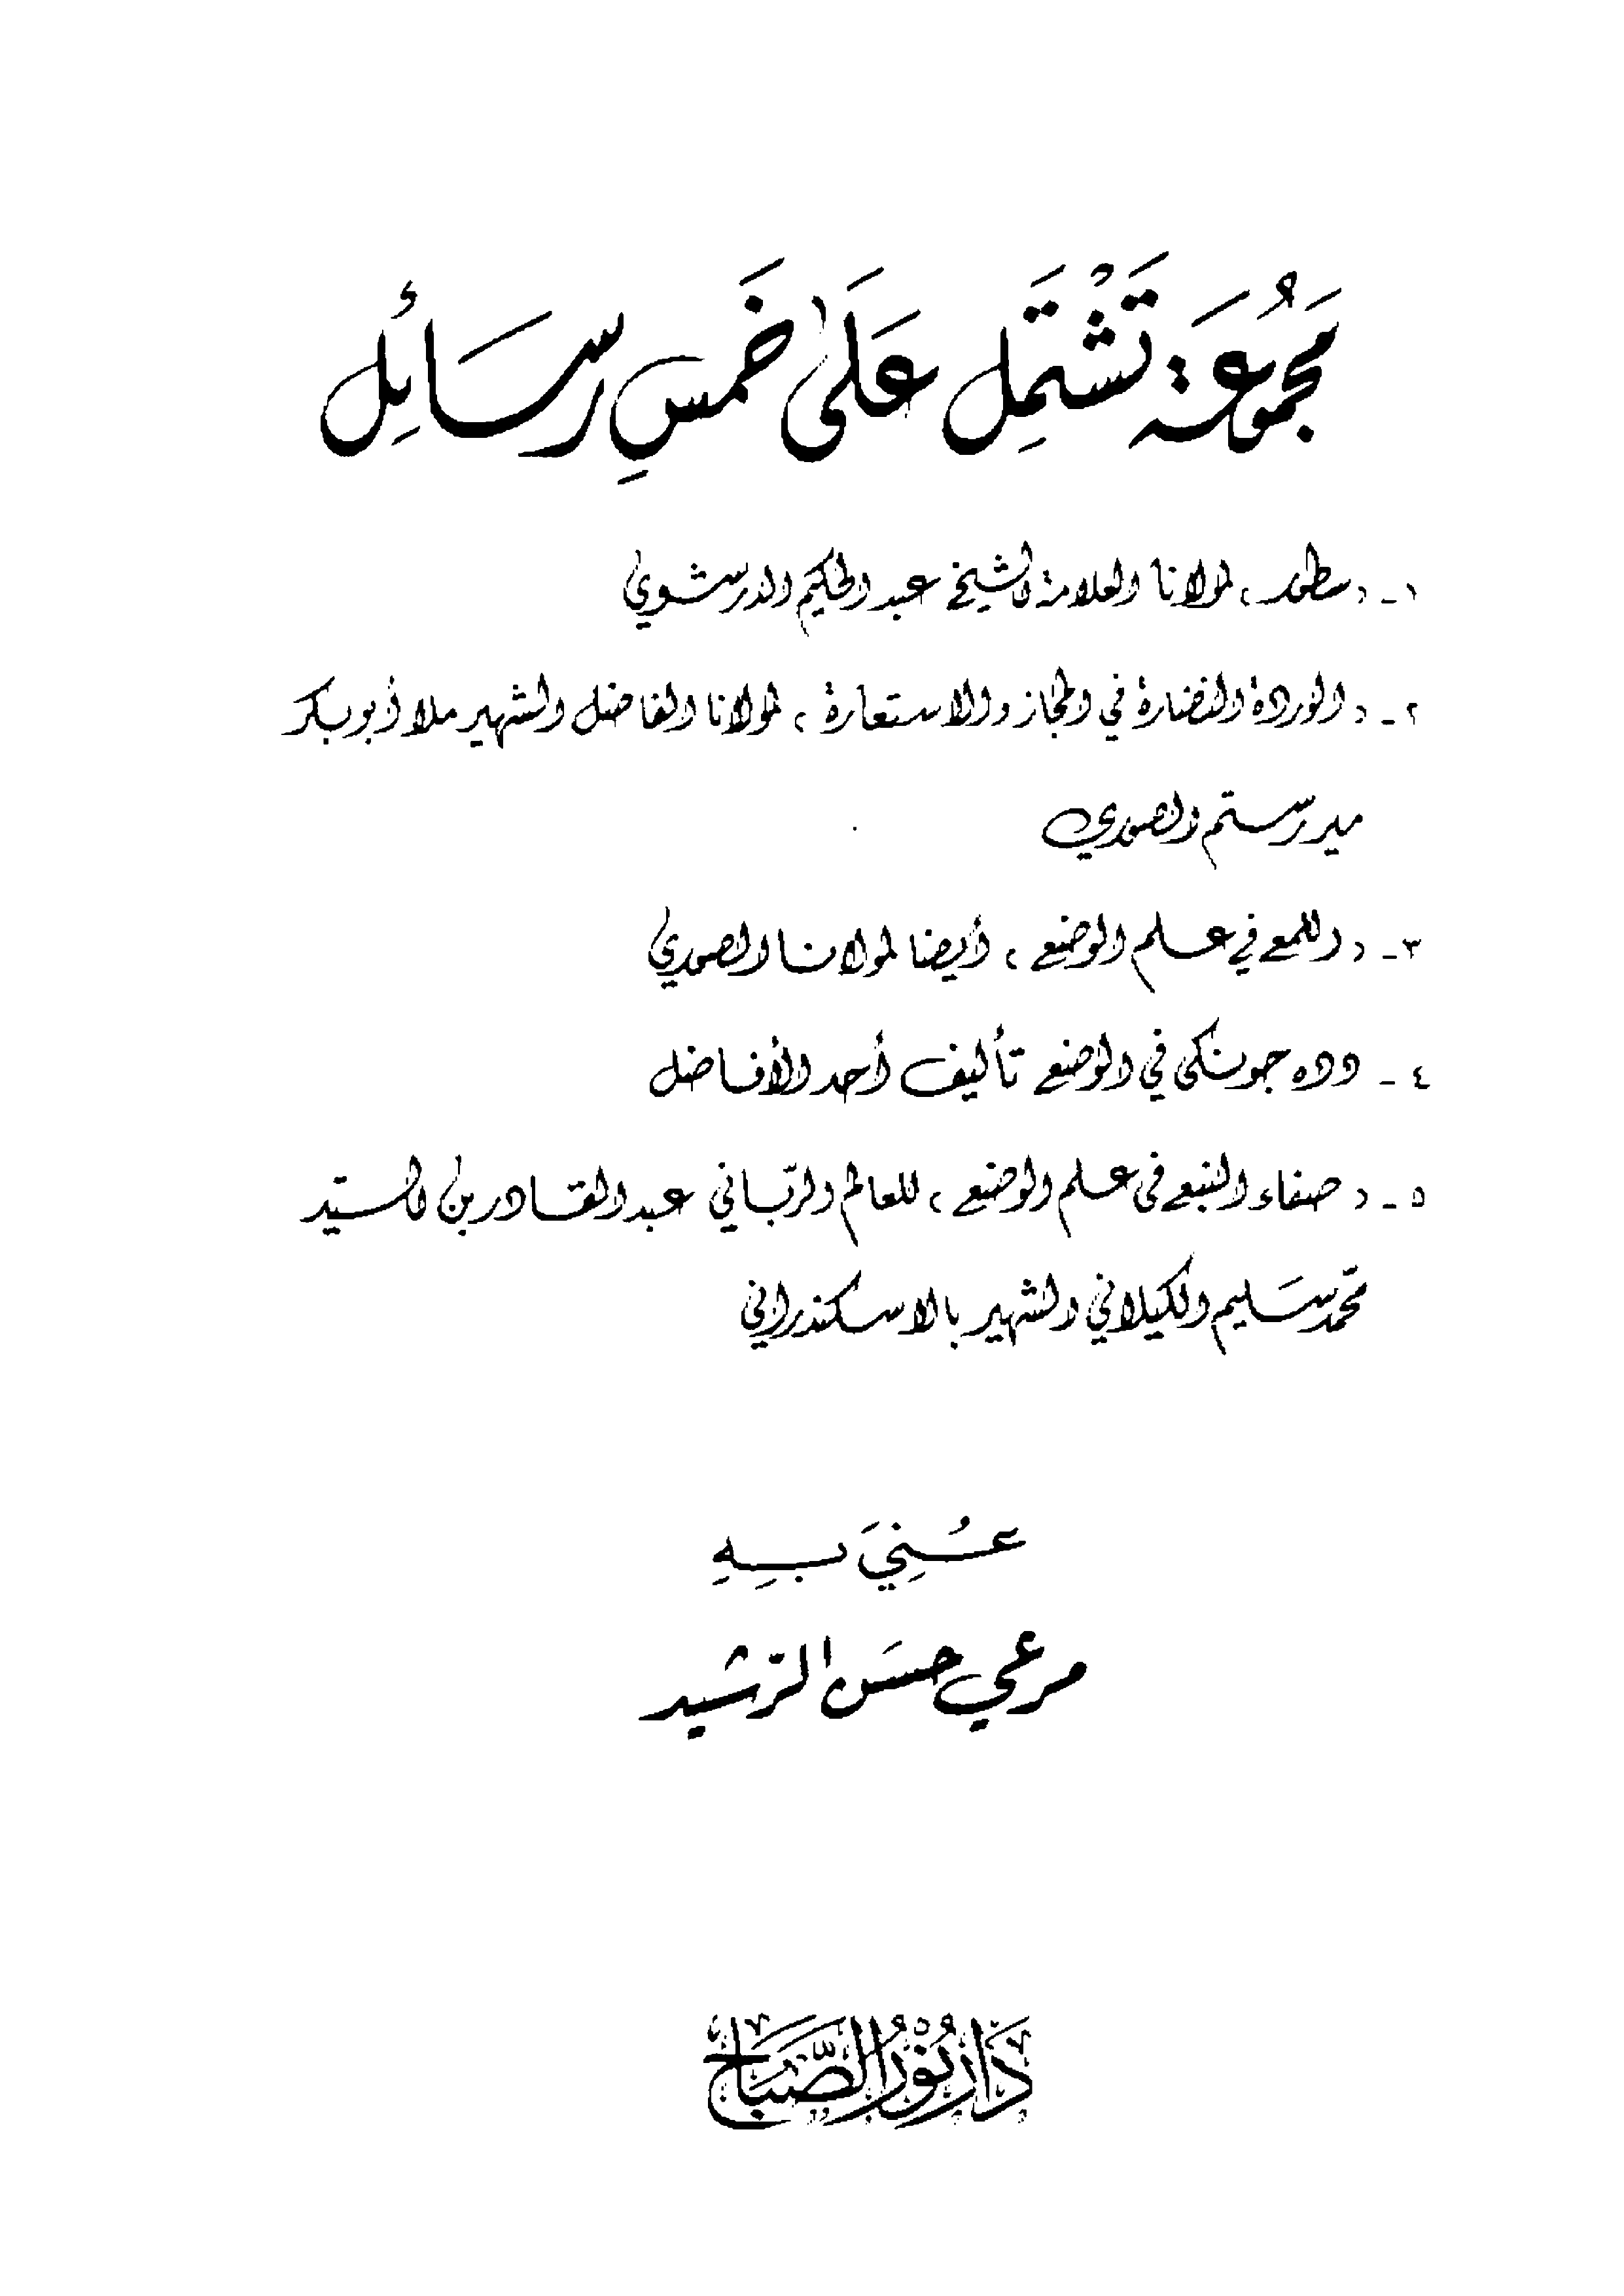 مَجْمُوعَة تَشْتَمِل عَلَى خَمسِ رسَائِل
١ - « سطور » لمولانا العلامة الشيخ عبد الحكيم الدرشوي
٢ - « الوردة النضارة في المجاز والاستعارة » لمولانا الفاضل الشهير ملا أبو بكر
مير رستم الصوري
٣ - « اللمع في علم الوضع » أيضا لمولانا الصوري
٤ - دده جونكى في الوضع تأليف أحد الأفاضل
٥ - « صفاء النبع في علم الوضع » للعالم الربّاني عبد القادر بن السيّد
محمّد سَليم الكيلاني الشهير بالاسكندراني
عُنِيَ بِهِ
مرعي حسَن الرّشيد
دَارُ نُوْرُ الصَّبَاح